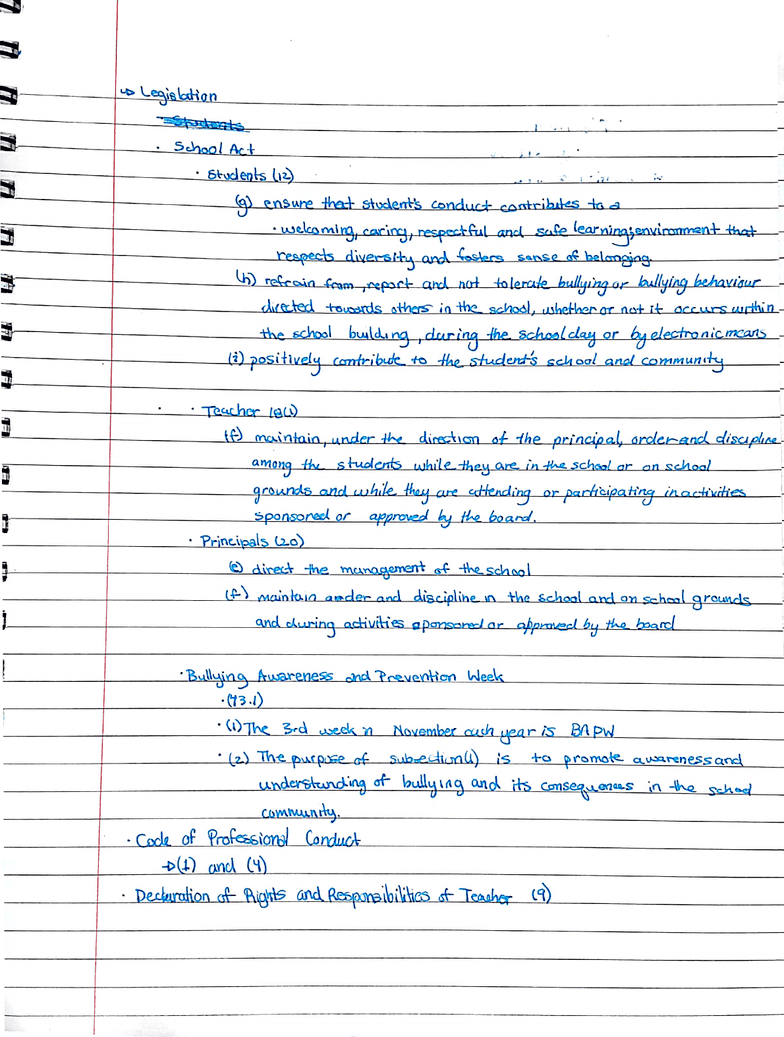 ↳ Legislation
Students
· School Act
· Students (12)
(g) ensure that student's conduct contributes to a
· welcoming, caring, respectful and safe learning environment that
respects diversity and fosters sense of belonging.
(h) refrain from, report and not tolerate bullying or bullying behaviour
directed towards others in the school, whether or not it occurs within
the school building, during the school day or by electronic means
(i) positively contribute to the student's school and community
· · Teacher 18(1)
(f) maintain, under the direction of the principal, order and discipline
among the students while they are in the school or on school
grounds and while they are attending or participating in activities
sponsored or approved by the board.
· Principals (20)
(e) direct the management of the school
(f) maintain order and discipline in the school and on school grounds
and during activities sponsored or approved by the board
· Bullying Awareness and Prevention Week
· (43.1)
· (1) The 3rd week n November each year is BAPW
· (2) The purpose of subsection (1) is to promote awareness and
understanding of bullying and its consequences in the school
community.
· Code of Professional Conduct
→ (1) and (4)
· Declaration of Rights and Responsibilities of Teacher (9)